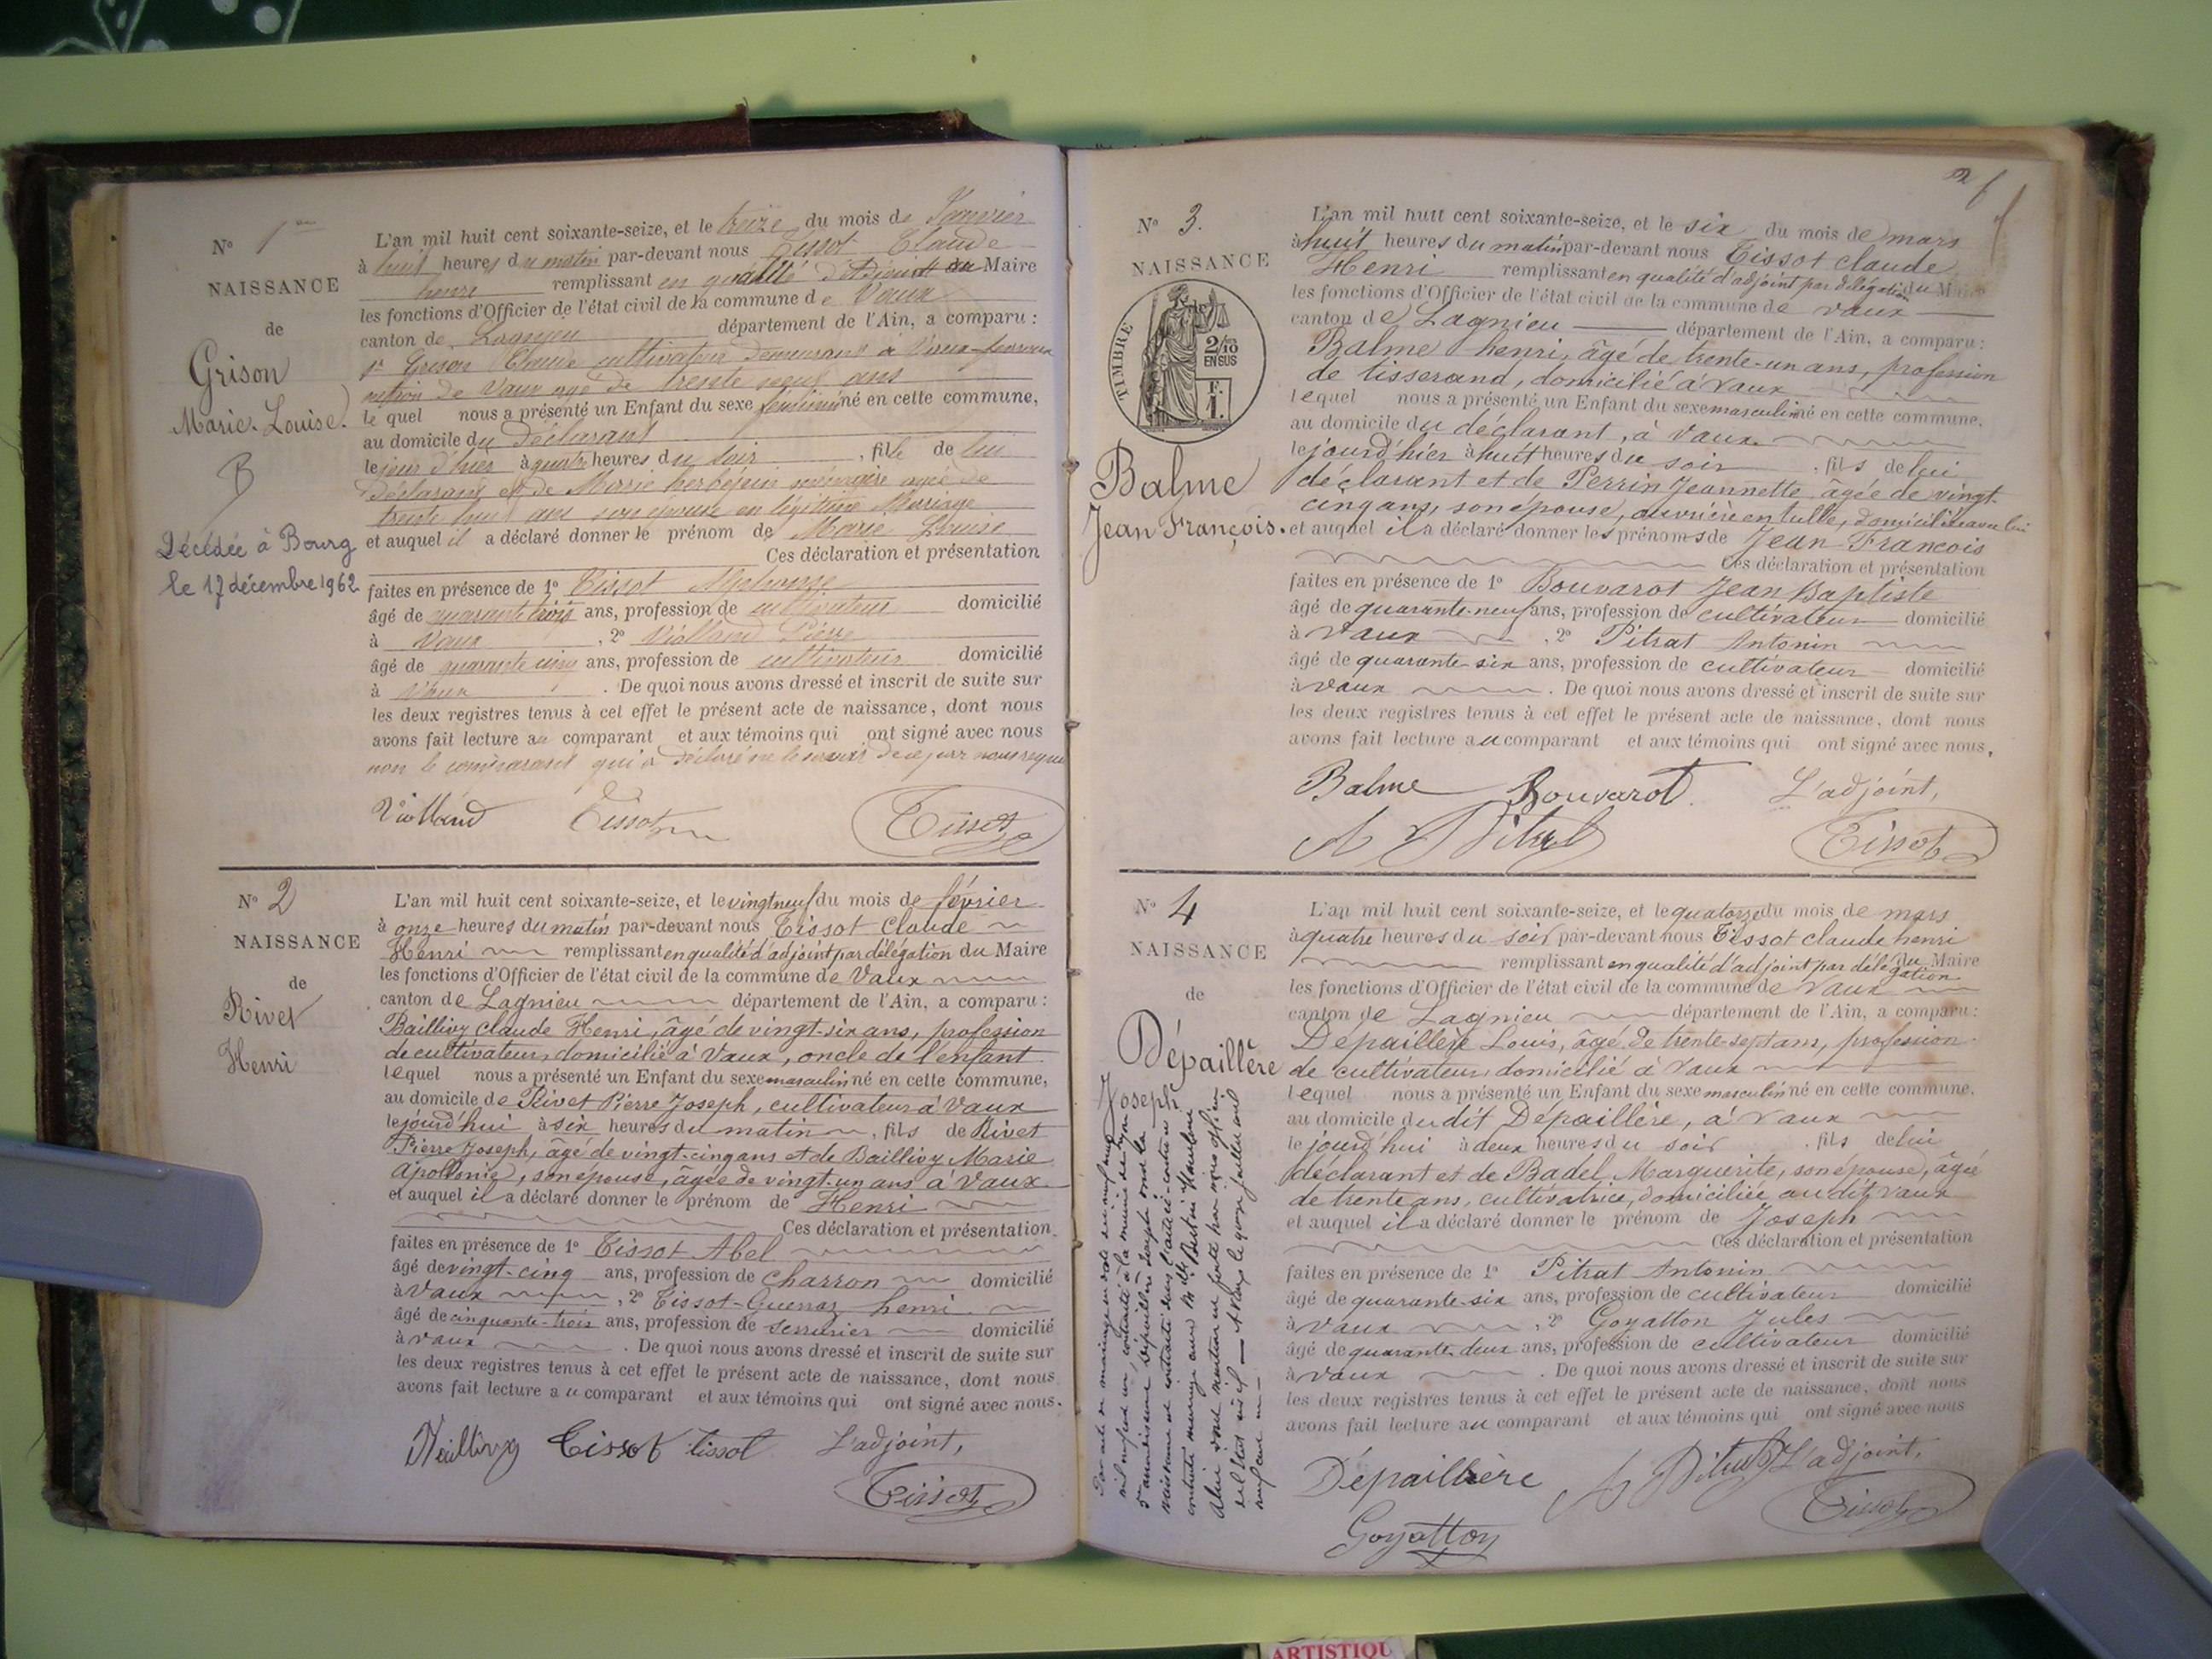 N° 1er
NAISSANCE
de
Grison
Marie Louise.
Décédée à Bourg
le 17 décembre 1962
L'an mil huit cent soixante-seize, et le treize du mois de Janvier
à huit heures du matin par-devant nous Tissot Claude
henri remplissant en qualité d'Adjoint du Maire
les fonctions d'Officier de l'état civil de la commune de Vaux
canton de Lagnieu département de l'Ain, a comparu :
Sr Grison Claude cultivateur demeurant à Vaux
de Vaux agé de trente neuf ans
le quel nous a présenté un Enfant du sexe féminin né en cette commune,
au domicile du déclarant
le jour d'hier à quatre heures du soir , fille de lui
déclarant et de Marie ménagère agée de
trente huit ans son épouse en légitime Mariage
et auquel il a déclaré donner le prénom de Marie Louise
Ces déclaration et présentation
faites en présence de 1° Tissot Alphonse
âgé de quarante trois ans, profession de cultivateur domicilié
à Vaux , 2° Violland Pierre
âgé de quarante cinq ans, profession de cultivateur domicilié
à Vaux . De quoi nous avons dressé et inscrit de suite sur
les deux registres tenus à cet effet le présent acte de naissance, dont nous
avons fait lecture au comparant et aux témoins qui ont signé avec nous
non le comparant qui a déclaré ne le savoir de ce par nous requis
Violland Tissot Tissot
N° 2
NAISSANCE
de
Rivet
Henri
L'an mil huit cent soixante-seize, et le vingt neuf du mois de février
à onze heures du matin par-devant nous Tissot Claude
Henri remplissant en qualité d'adjoint par délégation du Maire
les fonctions d'Officier de l'état civil de la commune de Vaux
canton de Lagnieu département de l'Ain, a comparu :
Baillivy Claude Henri, âgé de vingt-six ans, profession
de cultivateur, domicilié à Vaux, oncle de l'enfant
lequel nous a présenté un Enfant du sexe masculin né en cette commune,
au domicile de Rivet Pierre Joseph, cultivateur à Vaux
le jourd'hui à six heures du matin , fils de Rivet
Pierre Joseph, âgé de vingt-cinq ans et de Baillivy Marie
Apollonie, son épouse, âgée de vingt-un ans à Vaux
et auquel il a déclaré donner le prénom de Henri
Ces déclaration et présentation
faites en présence de 1° Tissot Abel
âgé de vingt-cinq ans, profession de charron domicilié
à Vaux , 2° Tissot-Guerraz henri
âgé de cinquante-trois ans, profession de serrurier domicilié
à vaux . De quoi nous avons dressé et inscrit de suite sur
les deux registres tenus à cet effet le présent acte de naissance, dont nous
avons fait lecture au comparant et aux témoins qui ont signé avec nous.
Baillivy Tissot tissot L'adjoint,
Tissot
2
N° 3.
NAISSANCE
TIMBRE
2/10
EN SUS
F.
1.
Balme
Jean François.
L'an mil huit cent soixante-seize, et le six du mois de mars
à huit heures du matin par-devant nous Tissot claude
Henri remplissant en qualité d'adjoint par délégation du Maire
les fonctions d'Officier de l'état civil de la commune de vaux
canton de Lagnieu département de l'Ain, a comparu :
Balme henri, âgé de trente-un ans, profession
de tisserand, domicilié à vaux
lequel nous a présenté un Enfant du sexe masculin né en cette commune,
au domicile du déclarant, à Vaux
le jourd'hier à huit heures du soir , fils de lui
déclarant et de Perrin Jeannette âgée de vingt-
cinq ans, son épouse, ouvrière en tulle, domiciliée avec lui
et auquel il a déclaré donner les prénoms de Jean François
Ces déclaration et présentation
faites en présence de 1° Bouvarot Jean Baptiste
âgé de quarante-neuf ans, profession de cultivateur domicilié
à vaux , 2° Pitrat Antonin
âgé de quarante-six ans, profession de cultivateur domicilié
à vaux . De quoi nous avons dressé et inscrit de suite sur
les deux registres tenus à cet effet le présent acte de naissance, dont nous
avons fait lecture au comparant et aux témoins qui ont signé avec nous,
Balme Bouvarot L'adjoint,
A Pitrat Tissot
N° 4
NAISSANCE
de
Dépaillère
Joseph
L'an mil huit cent soixante-seize, et le quatorze du mois de mars
à quatre heures du soir par-devant nous Tissot claude henri
remplissant en qualité d'adjoint par délégation du Maire
les fonctions d'Officier de l'état civil de la commune de Vaux
canton de Lagnieu département de l'Ain, a comparu :
Dépaillère Louis, âgé de trente-sept ans, profession
de cultivateur, domicilié à Vaux
lequel nous a présenté un Enfant du sexe masculin né en cette commune,
au domicile du dit Dépaillère, à vaux
le jourd'hui à deux heures du soir , fils de lui
déclarant et de Badel Marguerite, son épouse, âgée
de trente ans, cultivatrice, domiciliée au dit vaux
et auquel il a déclaré donner le prénom de Joseph
Ces déclaration et présentation
faites en présence de 1° Pitrat Antonin
âgé de quarante-six ans, profession de cultivateur domicilié
à vaux , 2° Goyatton Jules
âgé de quarante-deux ans, profession de cultivateur domicilié
à vaux . De quoi nous avons dressé et inscrit de suite sur
les deux registres tenus à cet effet le présent acte de naissance, dont nous
avons fait lecture au comparant et aux témoins qui ont signé avec nous
Dépaillère A Pitrat L'adjoint,
Goyatton Tissot
ARTISTIQU